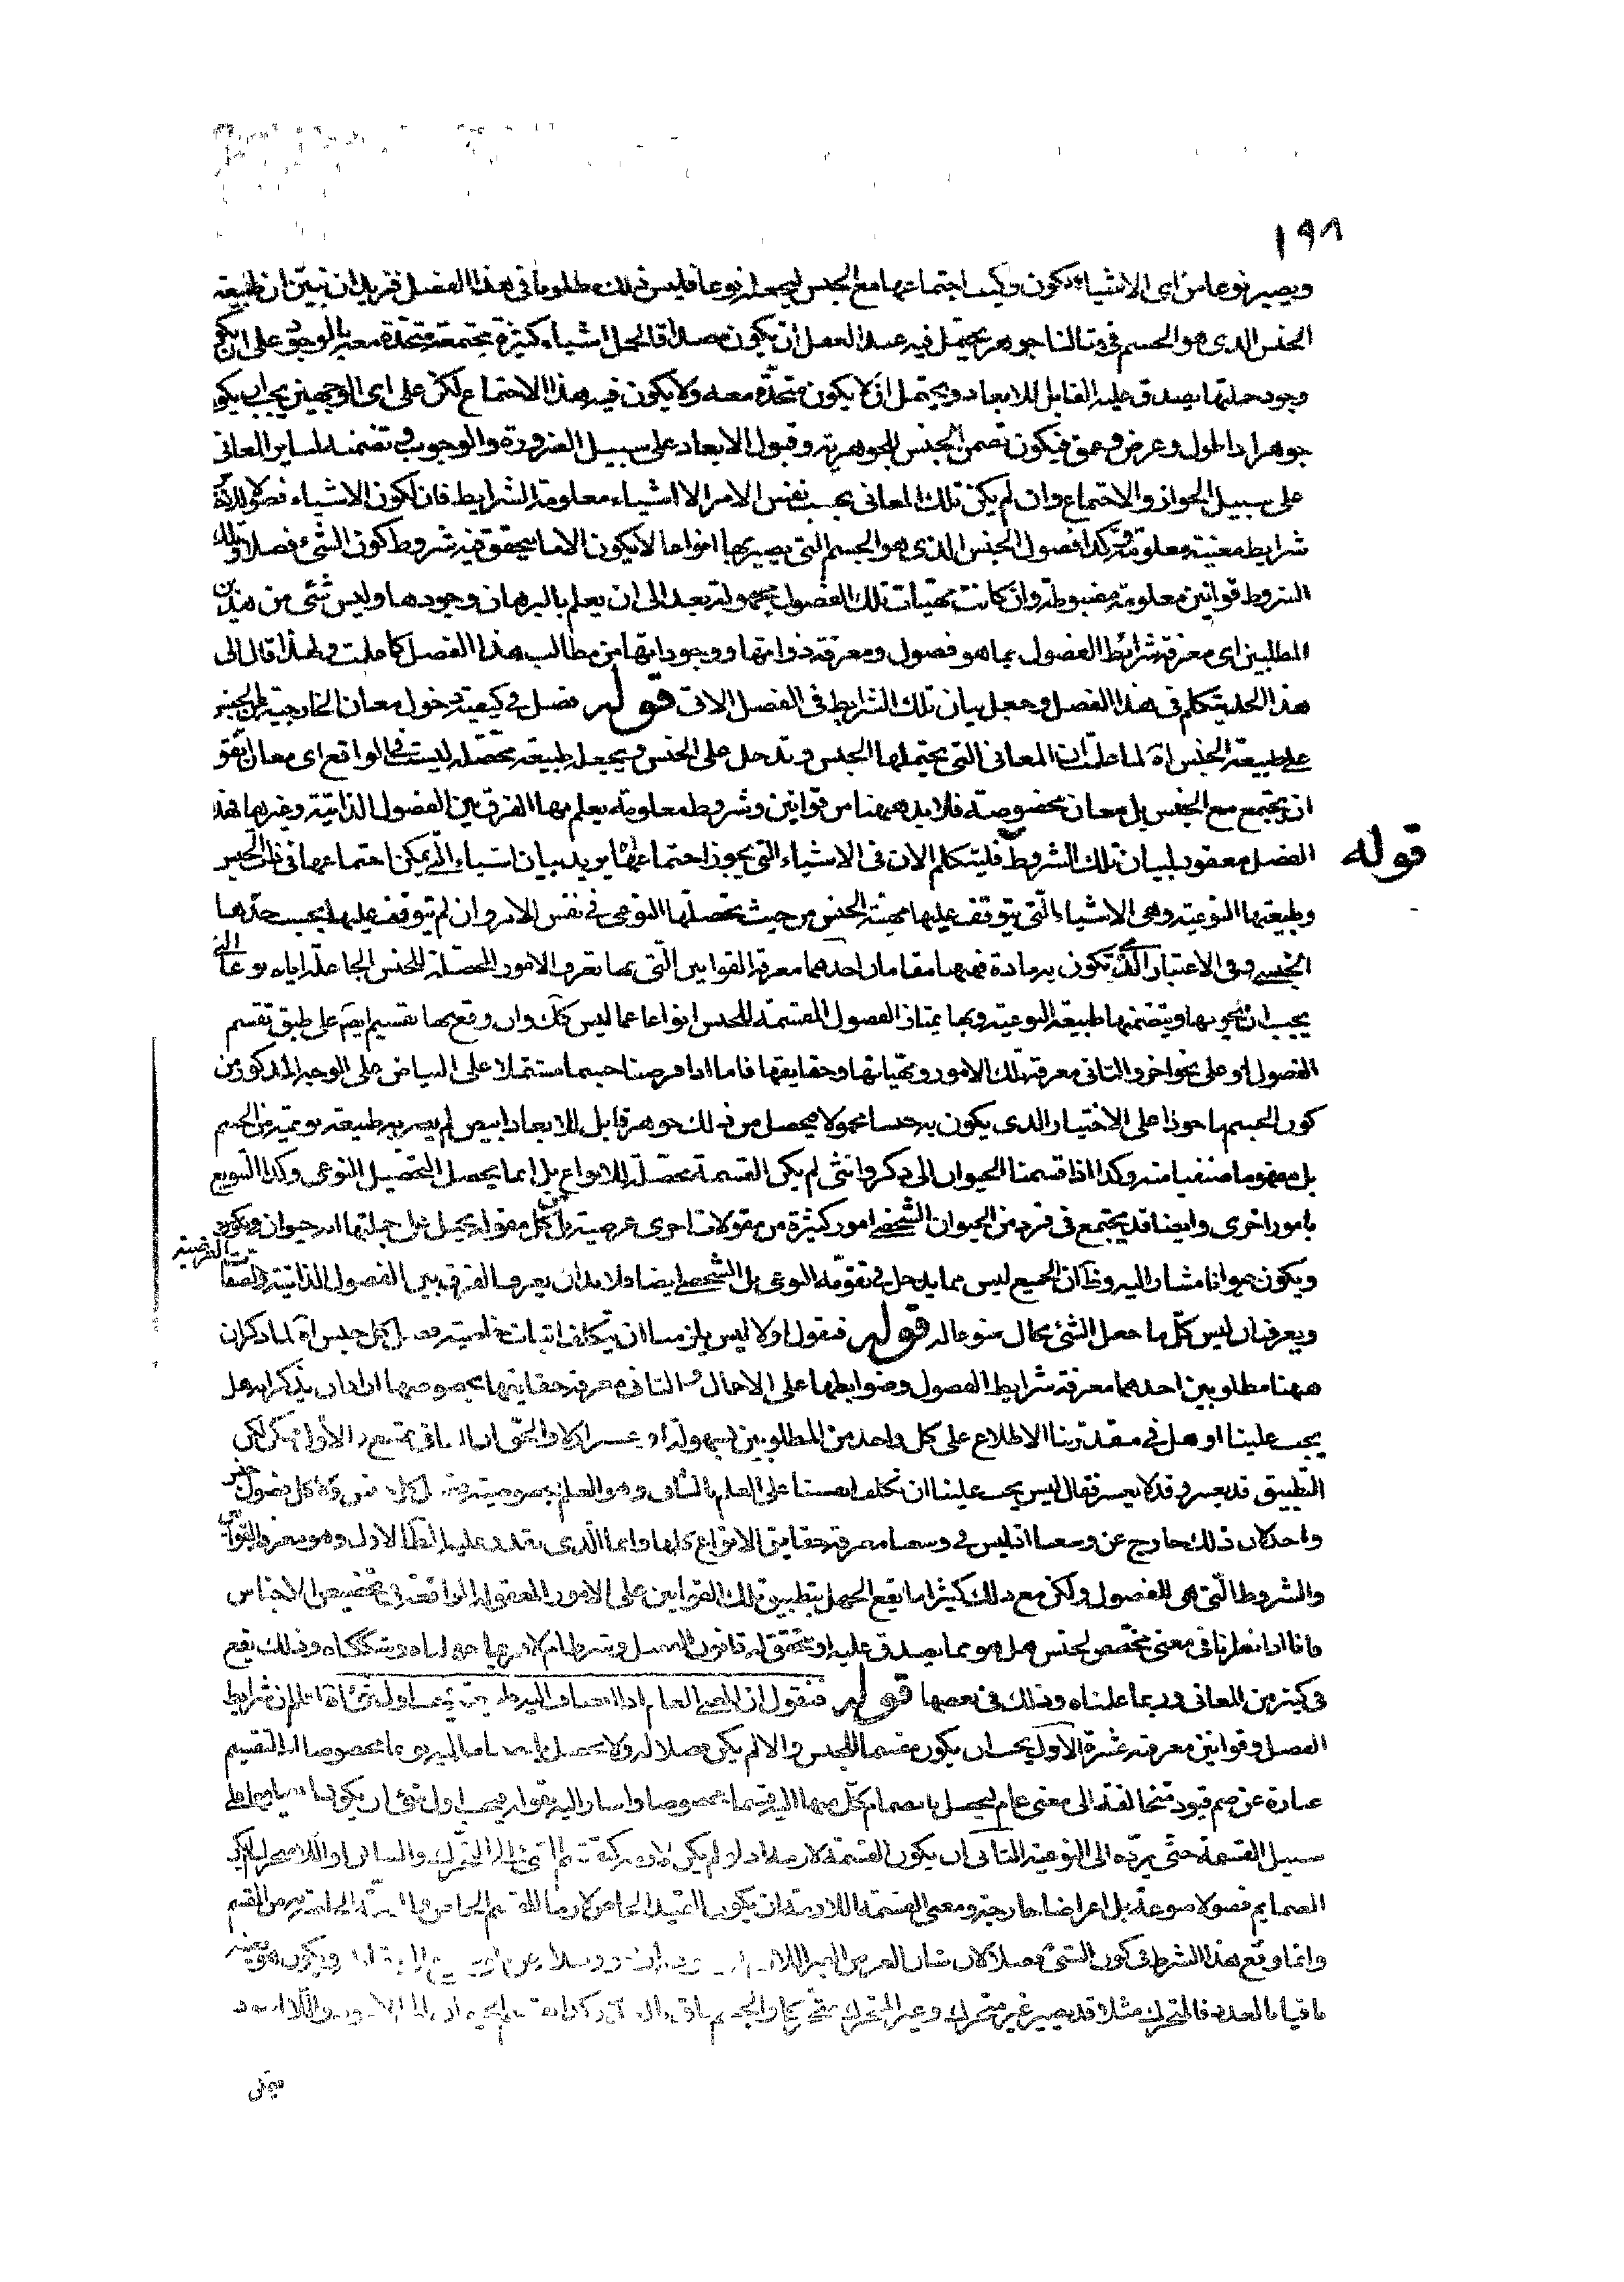 ١٩٨
ويصير نوعا من اى الاشياء تكون وكيف اجتماعها مع الجنس ليجعله نوعا فليس ذلك مطلوبا فى هذا الفصل فنريد ان نبين ان طبيعة
الجنس الذى هو الجسم فى مثالنا جوهر يحتمل فيه عند العقل ان يكون مصداقا لجمل اشياء كثيرة مجتمعة متحدة معه بالوجود على ان يكون
وجود جملتها يصدق عليه القابل للابعاد ويحتمل ان لا يكون متحدة معه ولا يكون فيه هذا الاجتماع لكن على اى الوجهين يجب ان يكون
جوهرا ذا طول وعرض وعمق فيكون تضمن الجنس للجوهرية وقبول الابعاد على سبيل الضرورة والوجوب وتضمنه لساير المعانى
على سبيل الجواز والاجتماع وان لم يكن تلك المعانى بحسب نفس الامر الا اشياء معلومة الشرايط فان لكون الاشياء فصولا
شرايط معينة معلومة وكذا فصول الجنس الذى هو الجسم التى يصير بها انواعا لا يكون الا ما يتحقق فيه شروط كون الشئ فصلا وتلك
الشروط قوانين معلومة مضبوطة وان كانت مهيات تلك الفصول مجهولة بعد الى ان يعلم بالبرهان وجودها وليس شئ من هذين
المطلبين اى معرفة شرائط الفصول بما هو فصول ومعرفة ذواتها ووجوداتها من مطالب هذا الفصل كما علمت ولهذا قال الى
هذا الحد يتكلم فى هذا الفصل وجعل بيان تلك الشرايط فى الفصل الاتى قوله فصل فى كيفية دخول معان الخارجية عن الجنس
على طبيعة الجنس اه لما علمت ان المعانى التى يحتملها الجنس وتدخل على الجنس ويجعل طبيعة محصلة ليست فى الواقع اى معان يتفق
ان يجتمع مع الجنس بل معان مخصوصة فلابد ههنا من قوانين وشروط معلومة يعلم بها الفرق بين الفصول الذاتية وغيرها فهذا
الفصل معقود لبيان تلك الشروط فليتكلم الان فى الاشياء التى يجوز اجتماعها يريد بيان اشياء التى يمكن اجتماعها فى ذات الجنس
قوله
وطبيعتها النوعية وهى الاشياء التى يتوقف عليها مهية الجنس من حيث تحصلها النوعى فى نفس الامر وان لم يتوقف عليها بحسب حدها
الجنسى وفى الاعتبار الذى تكون به مادة فههنا مقامان احدهما معرفة القوانين التى بها تعرف الامور المحصلة للجنس الجاعلة اياه نوعا التى
يجب ان يحويها ويتضمنها طبيعة النوعية وبها يمتاز الفصول المقسمة للجنس انواعا عما ليس كذلك وان وقع بها تقسيم ايضا على طبق تقسيم
الفصول او على نحو اخر والثانى معرفة تلك الامور ومهياتها وحقايقها فاما اذا فرضنا جسما مشتملا على البياض على الوجه المذكور من
كون الجسم ماخوذا على الاختيار الذى يكون به جنسا محمولا يحصل من ذلك جوهر قابل للابعاد ابيض لم يصر به طبيعة نوعية من الجسم
بل مفهوما صنفيا منه وكذا اذا قسمنا الحيوان الى ذكر وانثى لم يكن القسمة محصلة للانواع بل انما يحصل التحصيل النوعى وكذا التنويع
بامور اخرى وايضا قد يجتمع فى فرد من الحيوان الشخصى امور كثيرة من مقولات اخرى عرضية بل من كل مقولة يحمل على جملتها انه حيوان ويكون
ويكون حيوانا مشارا اليه وظ ان الجميع ليس مما يدخل فى تقومه النوعى بل الشخصى ايضا فلا بد ان يعرف الفرق بين الفصول الذاتية والصفات العرضية
ويعرف ان ليس كل ما جعل الشئ بحال منوعا له قوله فنقول اولا ليس يلزمنا ان يتكلف اثبات خاصية فصل كل جنس اه لما ذكر ان
ههنا مطلوبين احدهما معرفة شرايط الفصول وضوابطها على الاجمال والثانى معرفة حقايقها بخصوصها اراد ان يذكر انه هل
يجب علينا او هل فى مقدرتنا الاطلاع على كل واحد من المطلوبين بسهولة او عسر
التطبيق قد يعسر وقد لا يعسر فقال ليس يجب علينا ان نكلف انفسنا على العلم بالثانى وهو العلم بخصوصية فصل كل جنس
واحد لان ذلك خارج عن وسعنا اذ ليس فى وسعنا معرفة حقايق الانواع كلها وانما الذى يقدر عليه المط الاول وهو معرفة القوانين
والشروط التى هى للفصول ولكن مع ذلك كثيرا ما يقع الجهل بتطبيق تلك القوانين على الامور المعقولة الواقعة فى تخصيص الاجناس
فانا اذا نظرنا فى معنى مخصص لجنس هل هو مما يصدق عليه او يتحقق له قانون الفصل وشرطه ام لا فربما جهلناه وشككناه وذلك يقع
فى كثير من المعانى وربما علمناه وذلك فى بعضها قوله فنقول ان المعنى العام اذا انضاف اليه طبيعة يجب اول شئ اه اعلم ان شرايط
الفصل وقوانين معرفته عشرة الاول يجب ان يكون مقسما للجنس والا لم يكن فصلا له
عبارة عن ضم قيود متخالفة الى معنى عام ليحصل بانضمام كل منها اليه قسما مخصوصا واشار اليه بقوله يجب اول شئ ان يكون انضيافها على
سبيل القسمة حتى يرده الى النوعية الثانى ان يكون القسمة لازمة اذ لو لم يكن لازمة
الضمايم فصولا منوعة بل اعراضا خارجة ومعنى القسمة اللازمة ان يكون القيد الخاص لازما للقسم الخاص
وانما وقع هذا الشرط فى كون الشئ فصلا لان شان العرض الغير اللازم
باقيا بالعدد فالمتحرك مثلا قد يصير غير متحرك وغير المتحرك متحركا والجسم باق